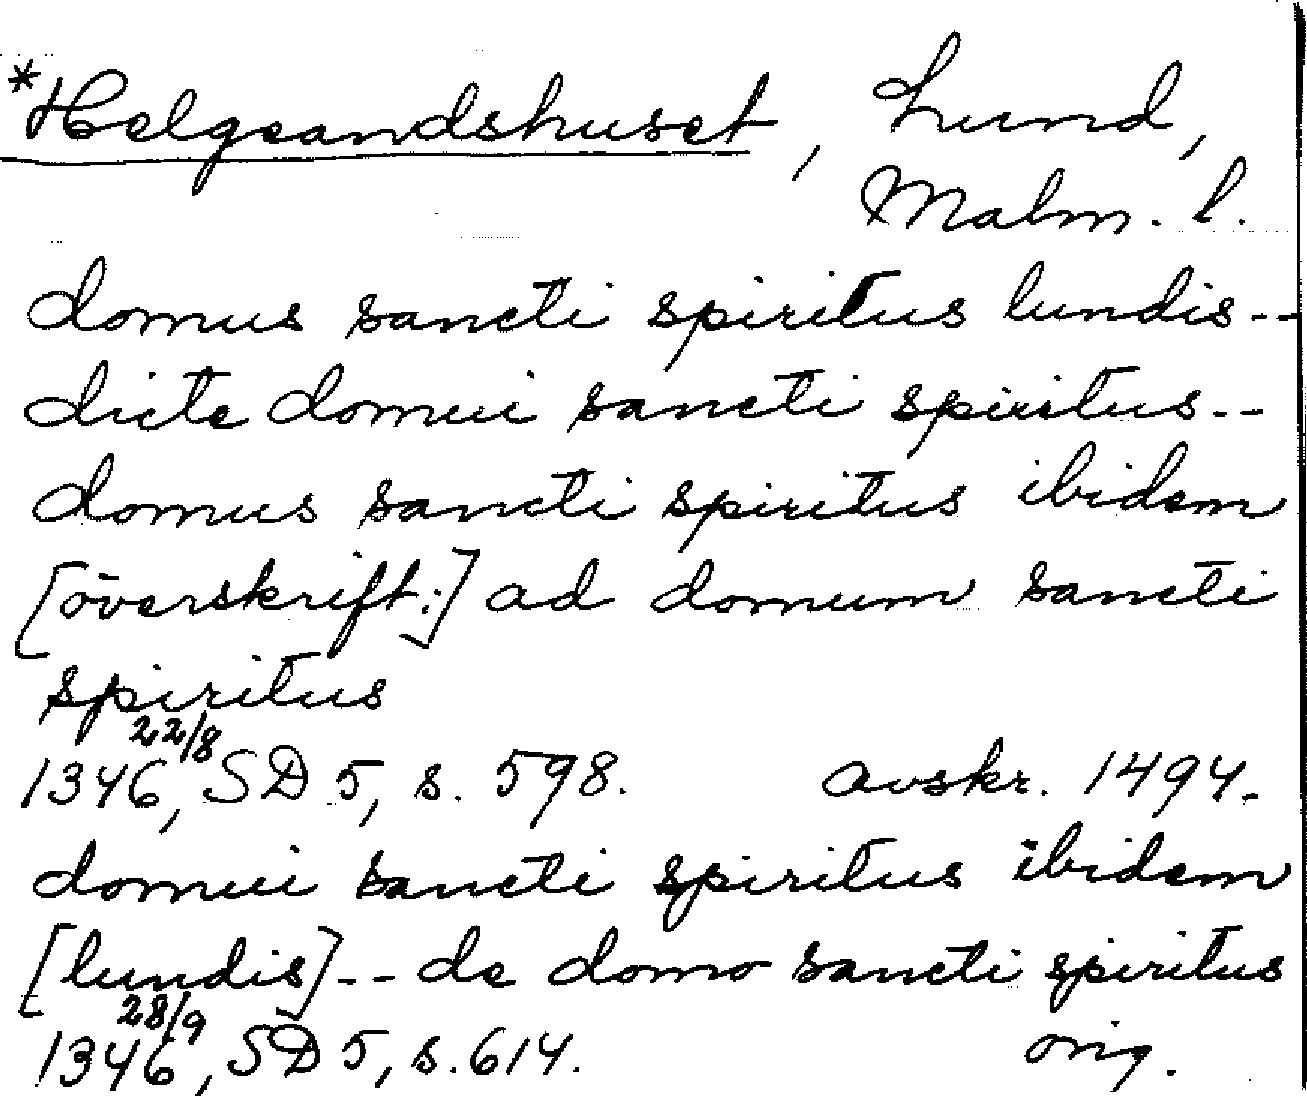 *Helgeandshuset, Lund,
Malm. l.
domus sancti spiritus lundis--
dicte domui sancti spiritus--
domus sancti spiritus ibidem
[överskrift:] ad domum sancti
spiritus
1346 22/8, SD 5, s. 598. avskr. 1494.
domui sancti spiritus ibidem
[lundis]-- de domo sancti spiritus
1346 28/9, SD 5, s. 614. orig.